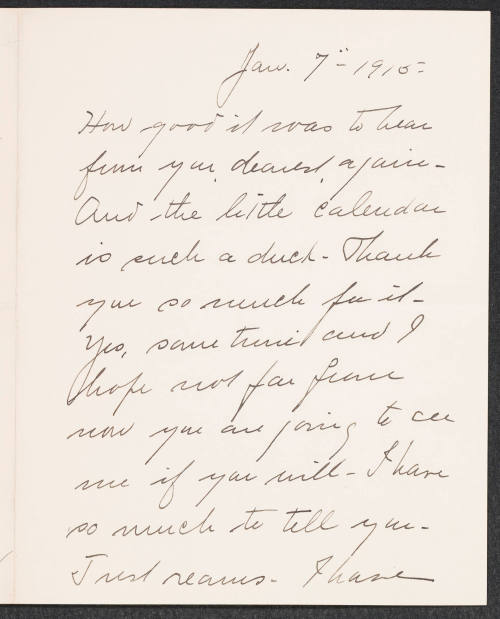 Jan. 7" - 1915 -
How good it was to hear
from you, dearest, again -
And the little calendar
is such a duck - Thank
you so much for it -
Yes, some time and I
hope not far from
now you are going to see
me if you will - I have
so much to tell you -
Just reams - I have